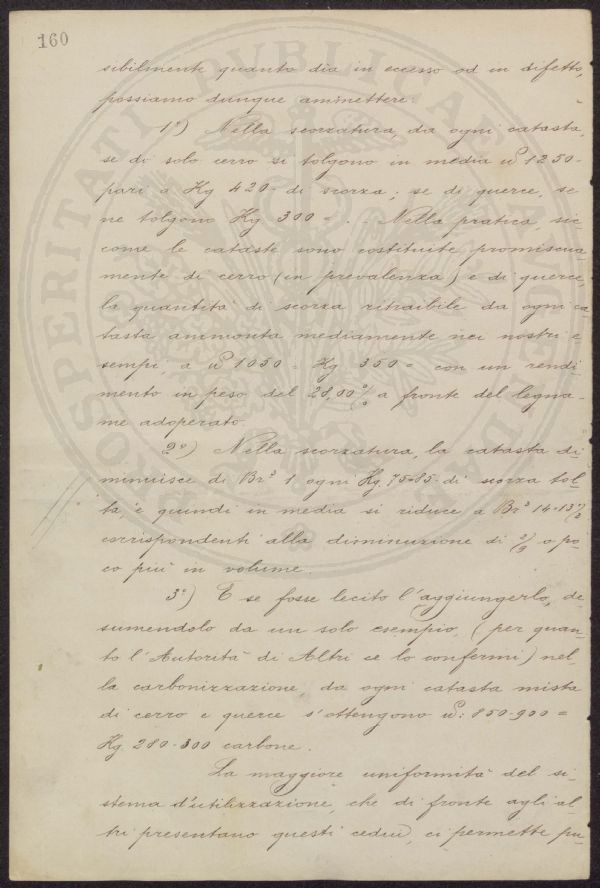 160
sibilmente quanto dia in eccesso od in difetto,
possiamo dunque ammettere:
1º) Nella scorzatura, da ogni catasta,
se di solo cerro si tolgono in media ℔ 1250-
pari a Kg 420- di scorza; se di querce, se
ne tolgono Kg 300 = . - Nella pratica, sic-
come le cataste sono costituite promiscua-
mente di cerro (in prevalenza) e di querce,
la quantità di scorza ritraibile da ogni ca-
tasta ammonta mediamente nei nostri e
sempi, a ℔ 1050 = Kg 350 = con un rendi-
mento in peso del 28,00 % a fronte del legna-
me adoperato.
2º) Nella scorzatura, la catasta di-
minuisce di Br³ 1 ogni Kg. 75-85- di scorza tol-
ta, e quindi in media si riduce a Br³ 14-13½
corrispondenti alla diminuzione di 2/9 o po-
co più in volume.
3º) E se fosse lecito l'aggiungerlo, de-
sumendolo da un solo esempio, (per quan-
to l'Autorità di Altri ce lo confermi) nel-
la carbonizzazione, da ogni catasta mista
di cerro e querce s'ottengono ℔: 850-900 =
Kg. 280-300 carbone.
La maggiore uniformità del si-
stema d'utilizzazione, che di fronte agli al-
tri presentano questi cedui, ci permette pu-
PROSPERITATI PVBLICAE AVGENDAE